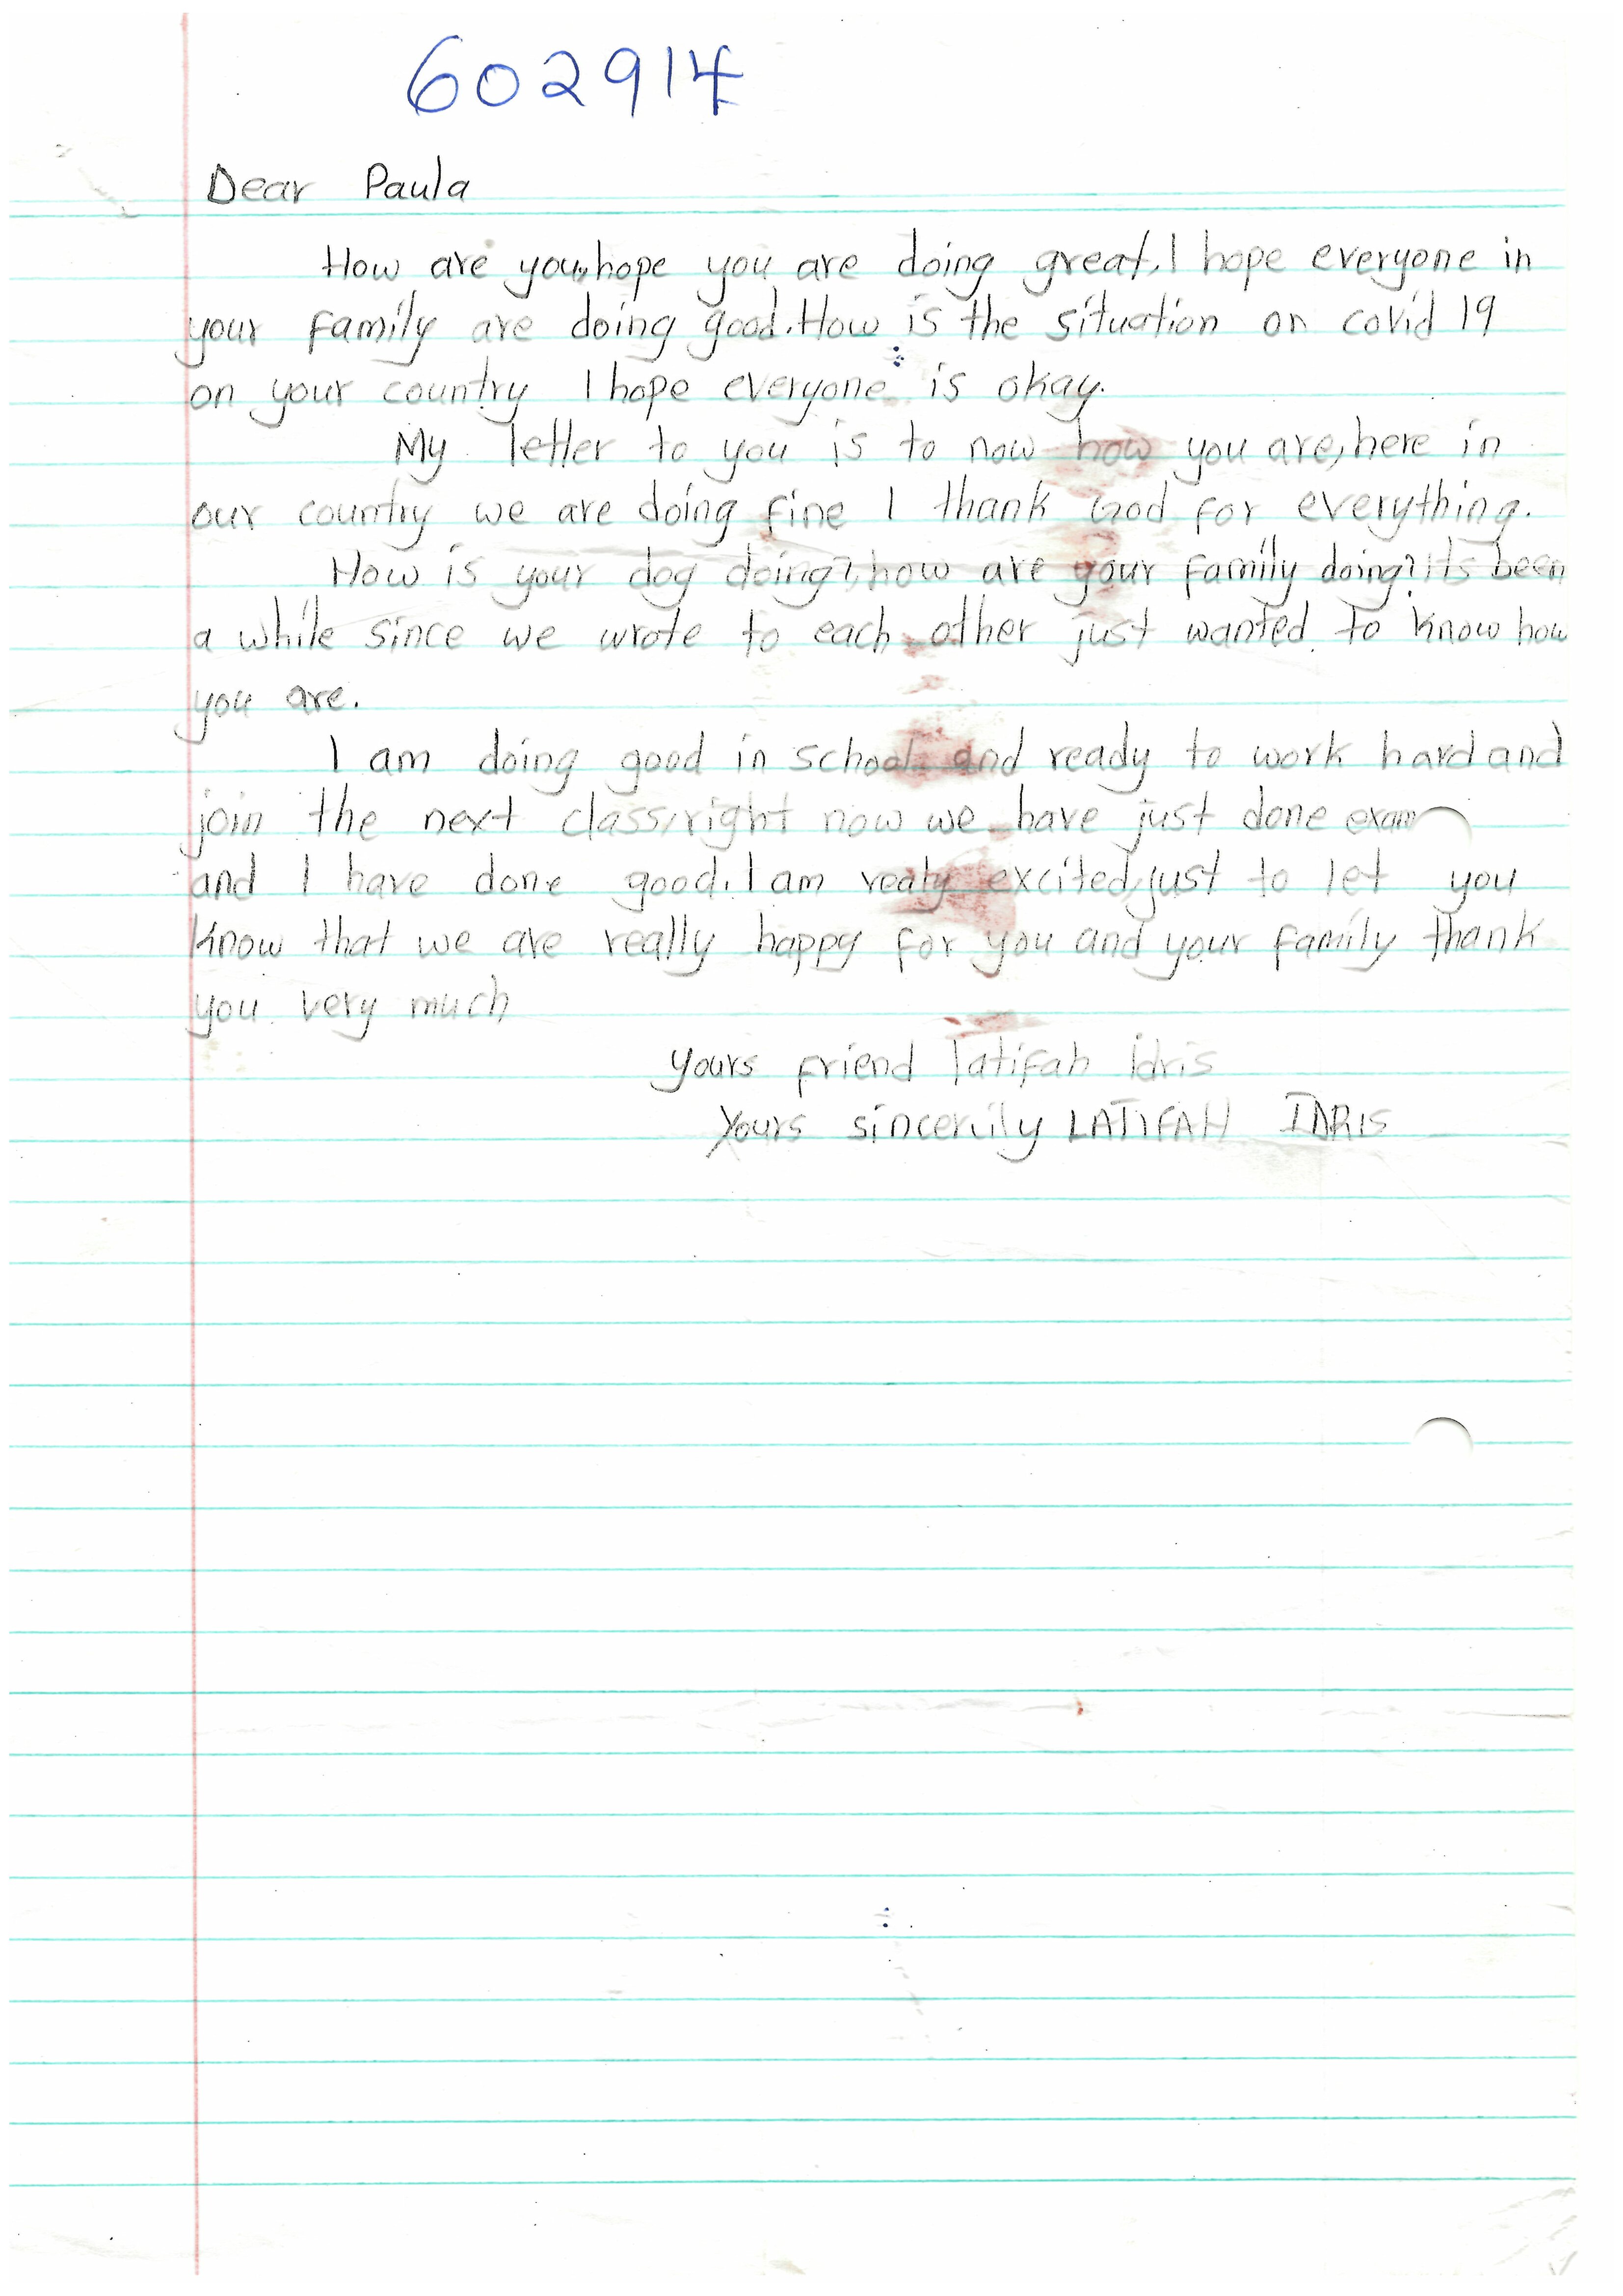 602914
Dear Paula
How are you, hope you are doing great. I hope everyone in
your family are doing good. How is the situation on covid 19
on your country I hope everyone is okay.
My letter to you is to now how you are, here in
our country we are doing fine I thank God for everything.
How is your dog doing?, how are your family doing? Its been
a while since we wrote to each other just wanted to know how
you are.
I am doing good in school and ready to work hard and
join the next class, right now we have just done exam
and I have done good. I am realy excited, just to let you
know that we are really happy for you and your family thank
you very much
yours friend latifah idris
yours sincerily LATIFAH IDRIS